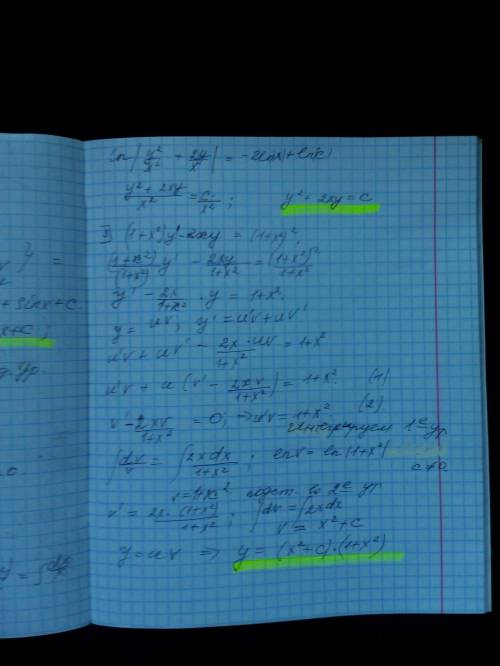 ln | y²/x² + 2y/x | = -2ln|x| + ln|c|
(y² + 2xy)/x² = c/x² ; y² + 2xy = C
(1+x²)y' - 2xy = (1+x²)²
(1+x²)/(1+x²) y' - 2xy/(1+x²) = (1+x²)²/(1+x²)
y' - 2x/(1+x²) · y = 1+x².
y = uv, y' = u'v + uv'
u'v + uv' - 2x·uv/(1+x²) = 1+x²
u'v + u (v' - 2xv/(1+x²)) = 1+x². (1)
v' - 2xv/(1+x²) = 0; ⇒ u'v = 1+x² (2)
Интегрируем 1е ур.
∫ dv/v = ∫ 2xdx/(1+x²) ; ln v = ln(1+x²)
c≠0
v = 1+x² подст. во 2е ур
v' = 2x·(1+x²)/(1+x²) ; ∫dv = ∫2xdx
v = x²+C
y = uv ⇒ y = (x²+C)·(1+x²)
} =
+ sinx + C.
x + C ;